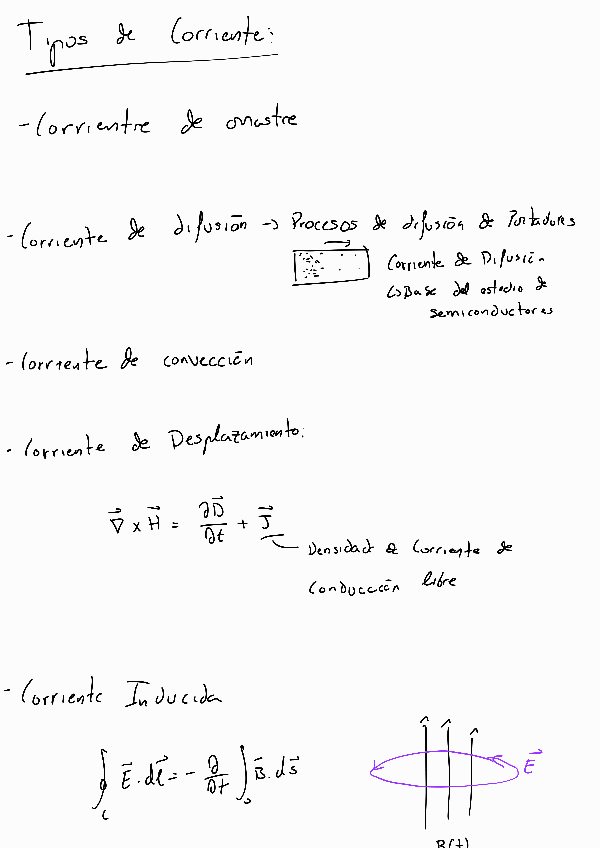 Tipos de Corriente:
- Corrientre de arrastre
- Corriente de difusión → Procesos de difusión de Portadores
Corriente de Difusión
↳ Base del estudio de
semiconductores
- Corriente de convección
- Corriente de Desplazamiento:
∇⃗ x H⃗ = ∂D⃗/∂t + J⃗
Densidad de Corriente de
Conducción libre
- Corriente Inducida
∮_C E⃗ · dℓ⃗ = - ∂/∂t ∫_S B⃗ · ds⃗
E⃗
B(t)